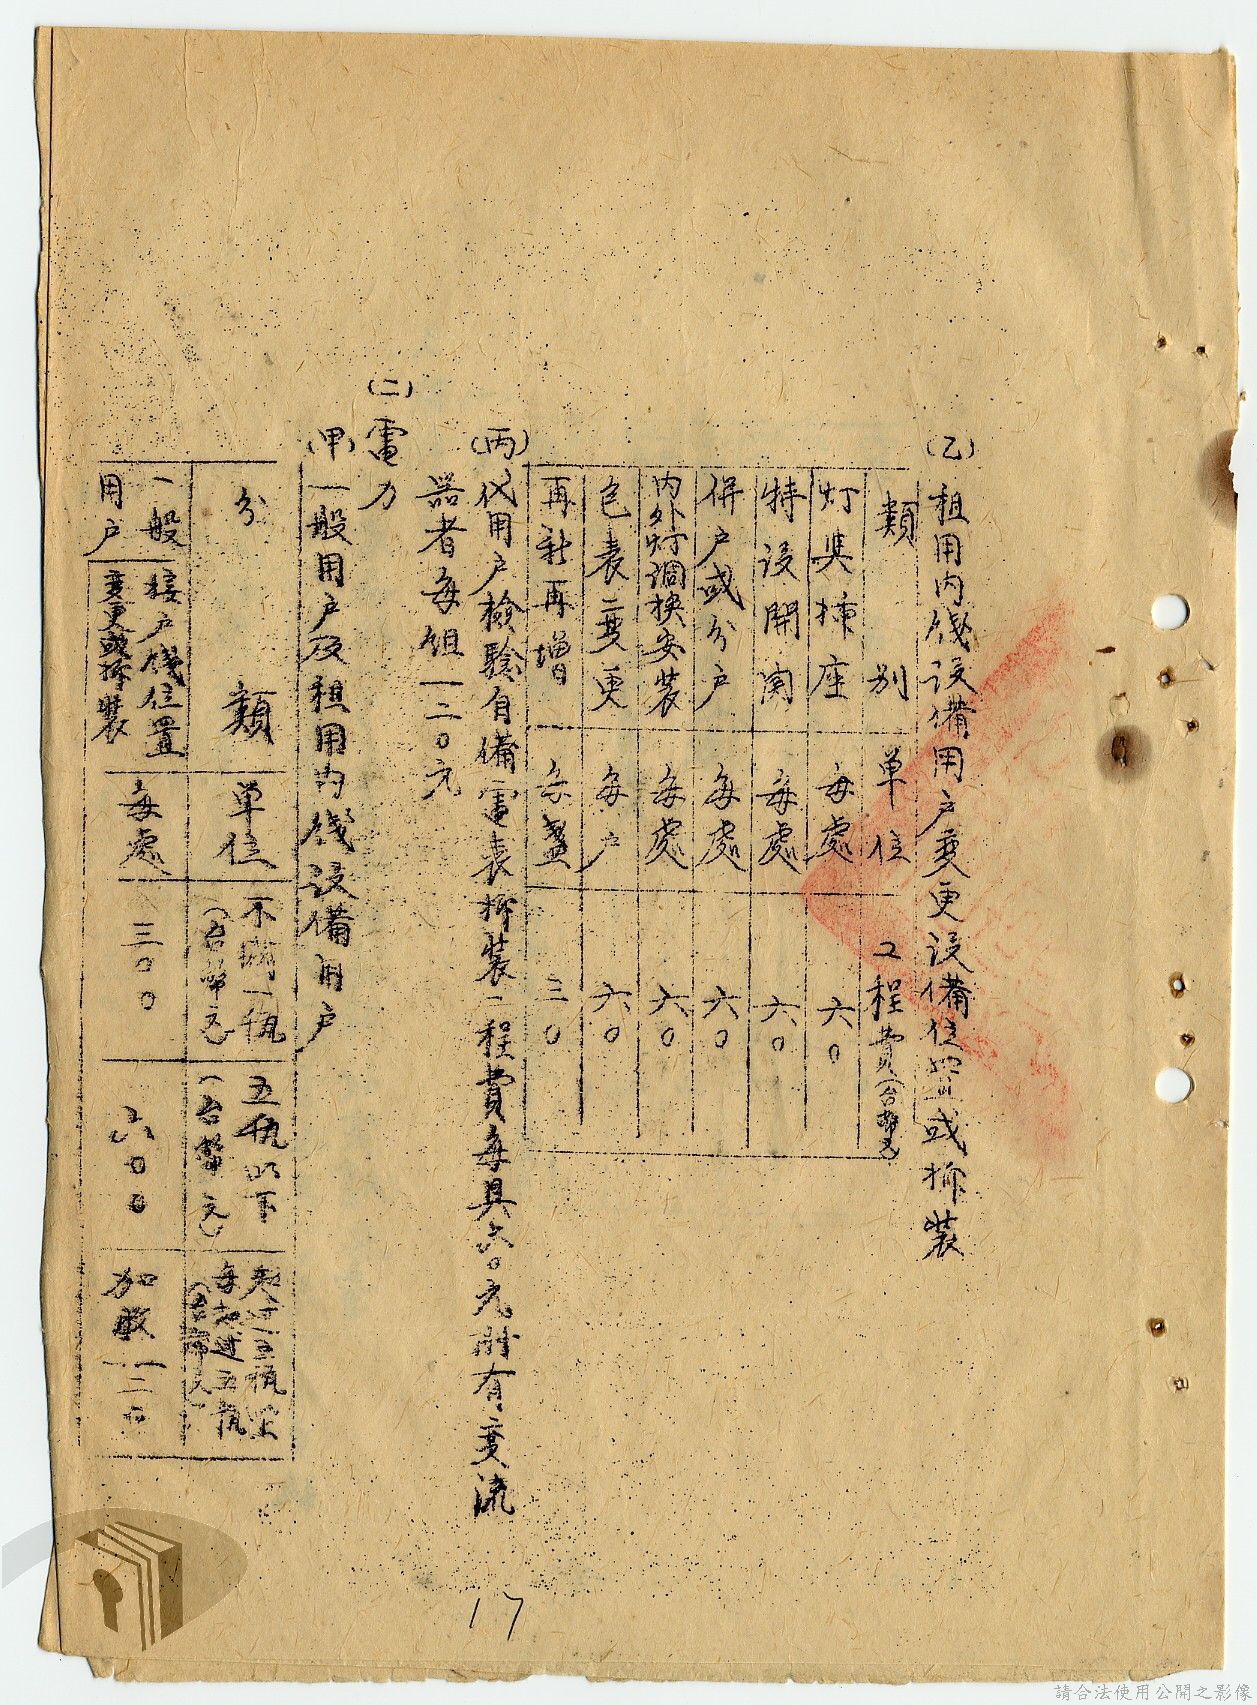 (乙)租用内线設備用户变更設備位置或拆裝
類別 单位 工程費(台幣元)
灯具插座 每處 六〇
特設開関 每處 六〇
併户或分户 每處 六〇
内外灯調换安装 每處 六〇
包表变更 每户 六〇
再新再增 每盞 三〇
(丙)代用户檢驗自備電表拆裝工程費每具六〇元附有变流
器者每組一二〇元
(二)電力
(甲)一般用户及租用内线設備用户
分類 单位 不滿一瓩(台幣元) 五瓩以下(台幣元) 超过五瓩以上每超过五瓩(台幣元)
一般用户 接户线位置变更或拆裝 每處 三〇〇 六〇〇 加收一二〇
17
請合法使用公開之影像